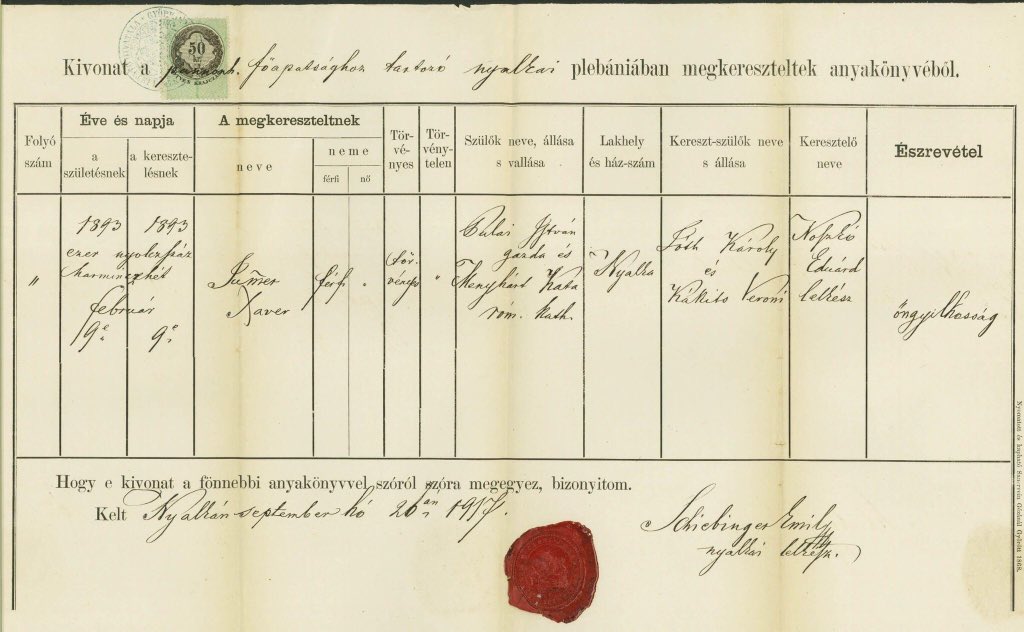 50
Kivonat a pannonh. főapatsághoz tartozó nyalkai plebániában megkereszteltek anyakönyvéből.
Folyó szám
Éve és napja
a születésnek
a keresztelésnek
A megkereszteltnek
neve
neme
férfi
nő
Törvényes
Törvénytelen
Szülők neve, állása s vallása
Lakhely és ház-szám
Kereszt-szülők neve s állása
Keresztelő neve
Észrevétel
"
1893 1893
ezer nyolczszáz
harminczhét
február
19e 9e
Xaver
férfi
"
törvényes
"
István
gazda és
Menyhárt Kata
róm. kath.
Nyalka
Tóth Károly
és
Veroni
Noszkó
Eduárd
lelkész
öngyilkosság
Hogy e kivonat a fönnebbi anyakönyvvel szóról szóra megegyez, bizonyitom.
Kelt Nyalkán september hó 26án 1917.
Schiebinger Emil
nyalkai lelkész.